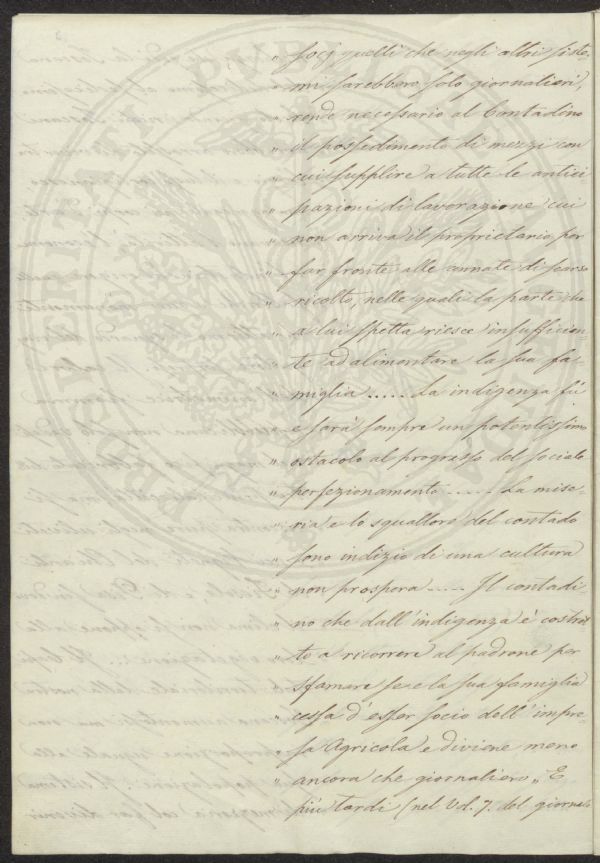 " socj quelli che negli altri siste-
" mi sarebbero solo giornalieri,
" rende necessario al Contadino
" il possedimento di mezzi con
" cui supplire a tutte le antici-
" pazioni di lavorazione cui
" non arriva il proprietario per
" far fronte alle annate di scarso
" ricolto, nelle quali la parte che
" a lui spetta riesce insufficien-
" te ad alimentare la sua fa-
" miglia ..... La indigenza fù
" e sarà sempre un potentissimo
" ostacolo al progresso del sociale
" perfezionamento ..... La mise-
" ria e lo squallore del contado
" sono indizio di una cultura
" non prospera ..... Il contadi-
" no che dall'indigenza è costret-
" to a ricorrere al padrone per
" sfamare se e la sua famiglia
" cessa d'esser socio dell'impre-
" sa Agricola e diviene meno
" ancora che giornaliero „ E
più tardi (nel Vol. 7. del giornale